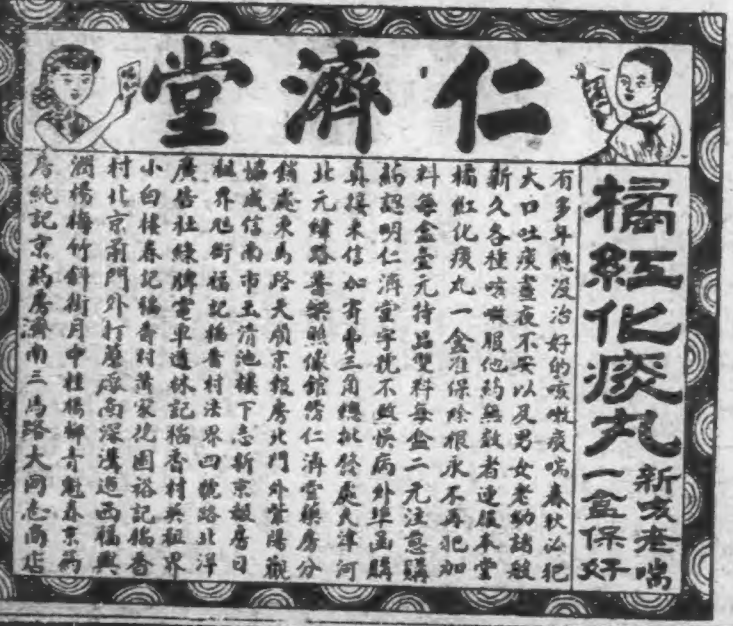 仁濟堂
橘紅化痰丸
新咳老喘
一盒保好
有多年總沒治好的咳嗽痰喘春秋必犯
大口吐痰晝夜不安以及男女老幼諸般
新久各種咳嗽服他药無效者速服本堂
橘紅化痰丸一盒准保除根永不再犯加
料每盒壹元特品雙料每盒二元注意購
药認明仁濟堂字號不致悞病外埠函購
真接來信加寄費三角總批發處天津河
北元緯路普樂照像館旁仁濟堂藥房分
銷處東馬路天領京報房北門外紫陽觀
協成信南市玉清池樓下志新京報房日
租界旭街福記稻香村法界四號路北洋
廣告社綠牌電車道林記稻香村英租界
小白樓春記稻香村蕭家花園裕記稻香
村北京前門外打磨廠南深溝迤西福興
潤楊梅竹斜街月中桂楊柳青魁春京药
房純記京药房濟南三馬路大同志商店